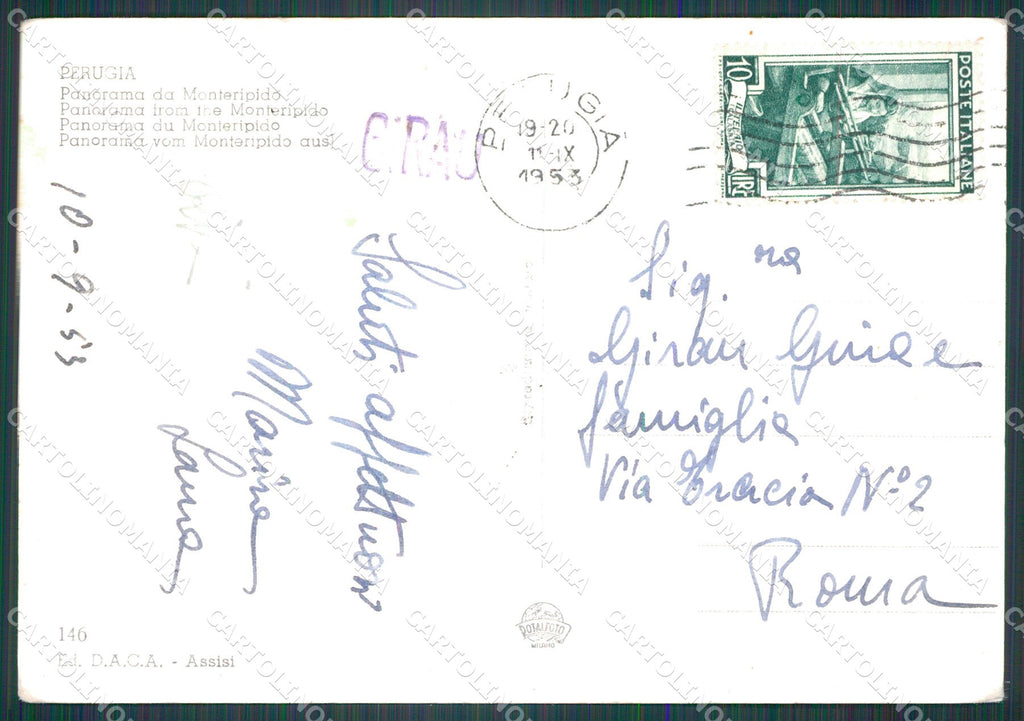 PERUGIA
Panorama da Monteripido
Panorama from the Monteripido
Panorama du Monteripido
Panorama vom Monteripido aus
GIRAU
PERUGIA
19-20
11-IX
1953
10
LIRE
POSTE ITALIANE
10-9-53
Saluti affettuosi
Marina
Laura
Sig.na
Girau Gina e
famiglia
Via Tracia N° 2
Roma
146
Ed. D.A.C.A. - Assisi
ROTALFOTO
MILANO
CARTOLINOMANIA